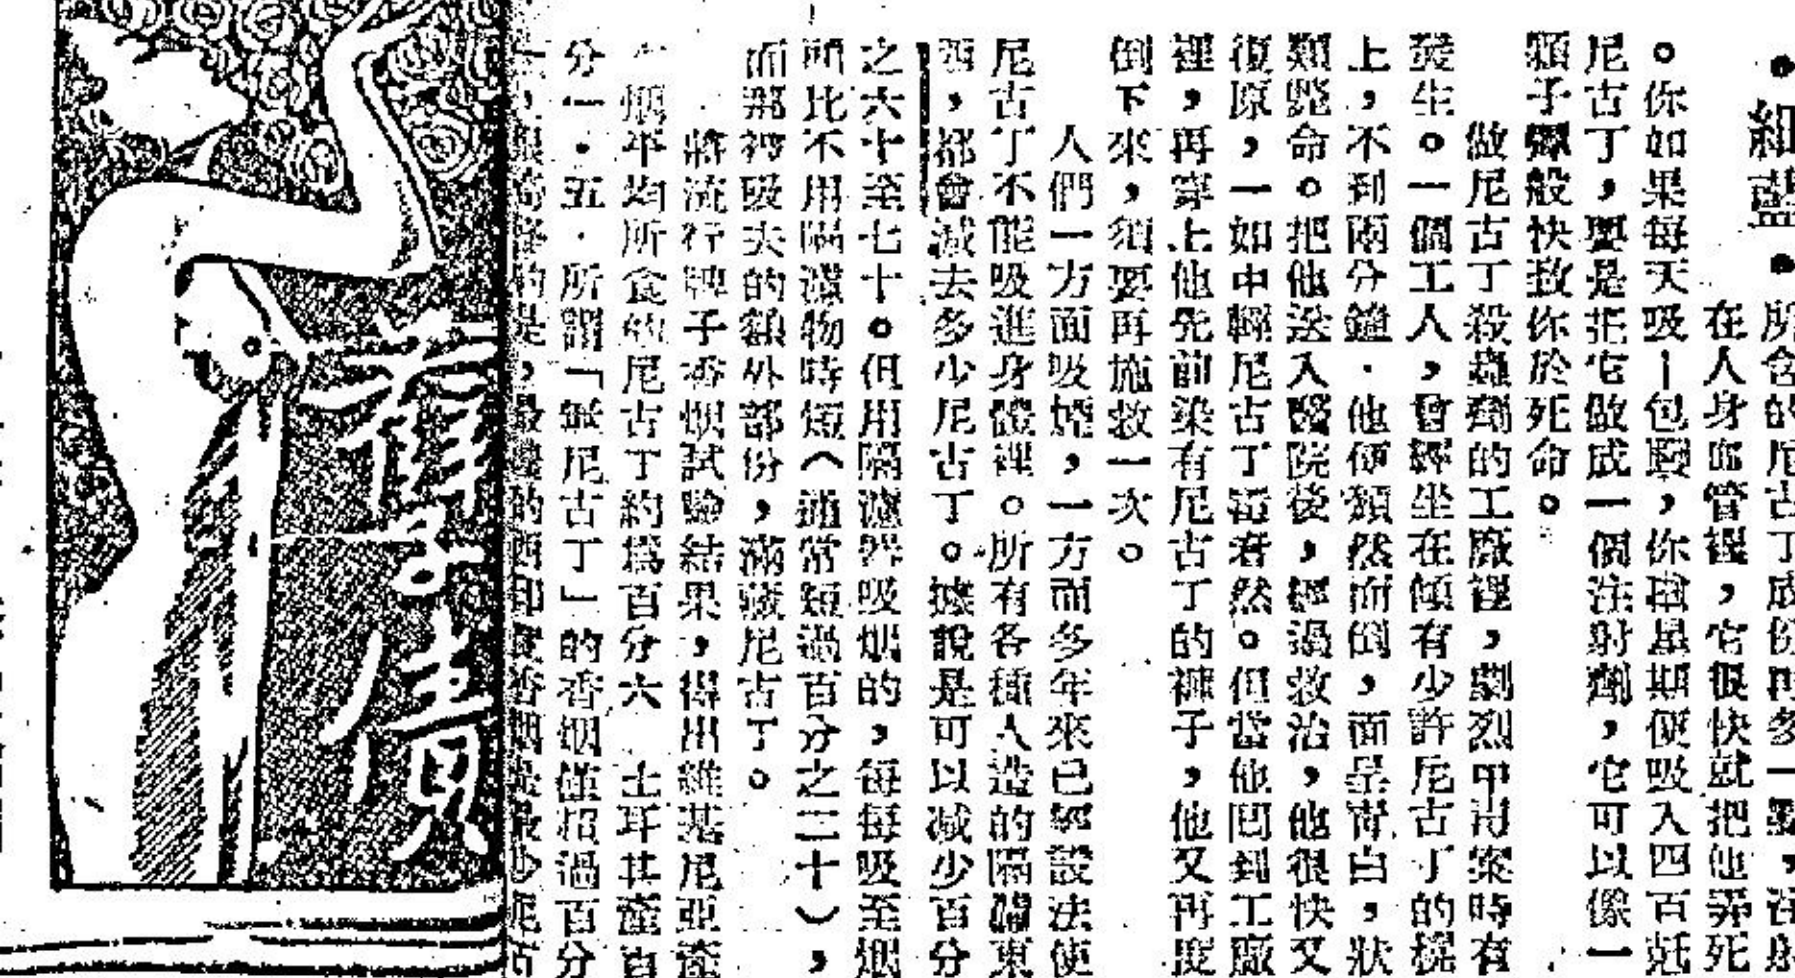 ・細藍・
所含的尼古丁成份再多一點，注射
在人身血管裡，它很快就把他弄死
。你如果每天吸一包烟，你每星期便吸入四百克
尼古丁，要是把它做成一個注射劑，它可以像一
顆子彈般快致你於死命。
做尼古丁殺蟲劑的工廠裡，劇烈中毒案時有
發生。一個工人，曾經坐在傾有少許尼古丁的櫈
上，不到兩分鐘．他便頹然而倒，面呈青白，狀
類斃命。把他送入醫院後，經過救治，他很快又
復原，一如中輕尼古丁毒者然。但當他回到工廠
裡，再穿上他先前染有尼古丁的褲子，他又再度
倒下來，須要再施救一次。
人們一方面吸烟，一方面多年來已經設法使
尼古丁不能吸進身體裡。所有各種人造的隔離東
西，都會減去多少尼古丁。據說是可以減少百分
之六十至七十。但用隔濾器吸烟的，每每吸至烟
頭比不用隔濾物時短（通常短過百分之二十），
而那被吸去的額外部份，滿藏尼古丁。
將流行牌子香烟試驗結果，得出維基尼亞產
烟平均所含的尼古丁約爲百分六　土耳其產百
分一．五．所謂「無尼古丁」的香烟僅招過百分